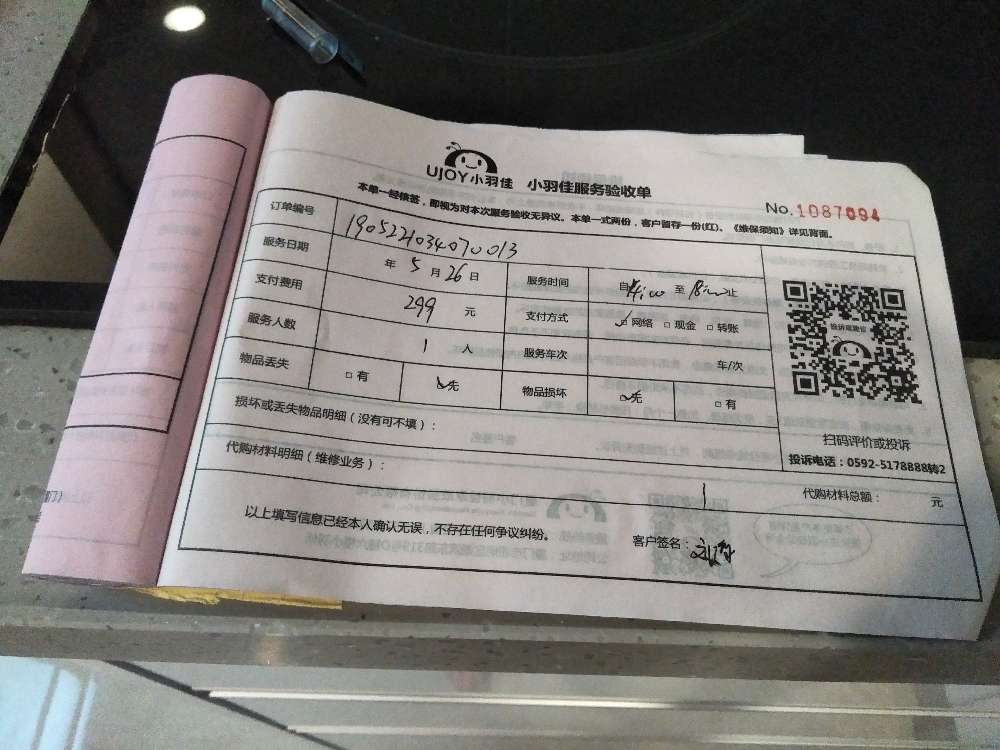 UJOY小羽佳 小羽佳服务验收单
No.1087094
本单一经核签,即视为对本次服务验收无异议。本单一式两份,客户留存一份(红)、《维保须知》详见背面。
订单编号 1905221034070013
服务日期 年 5 月 26 日 服务时间 自 14:00 至 18:00 止
支付费用 299 元 支付方式 ☑网络 □现金 □转账
服务人数 1 人 服务车次 车/次
物品丢失 □有 ☑无 物品损坏 ☑无 □有
损坏或丢失物品明细(没有可不填):
代购材料明细(维修业务):
代购材料总额: 元
以上填写信息已经本人确认无误,不存在任何争议纠纷。
客户签名:
投诉或建议
扫码评价或投诉
投诉电话:0592-5178888转2